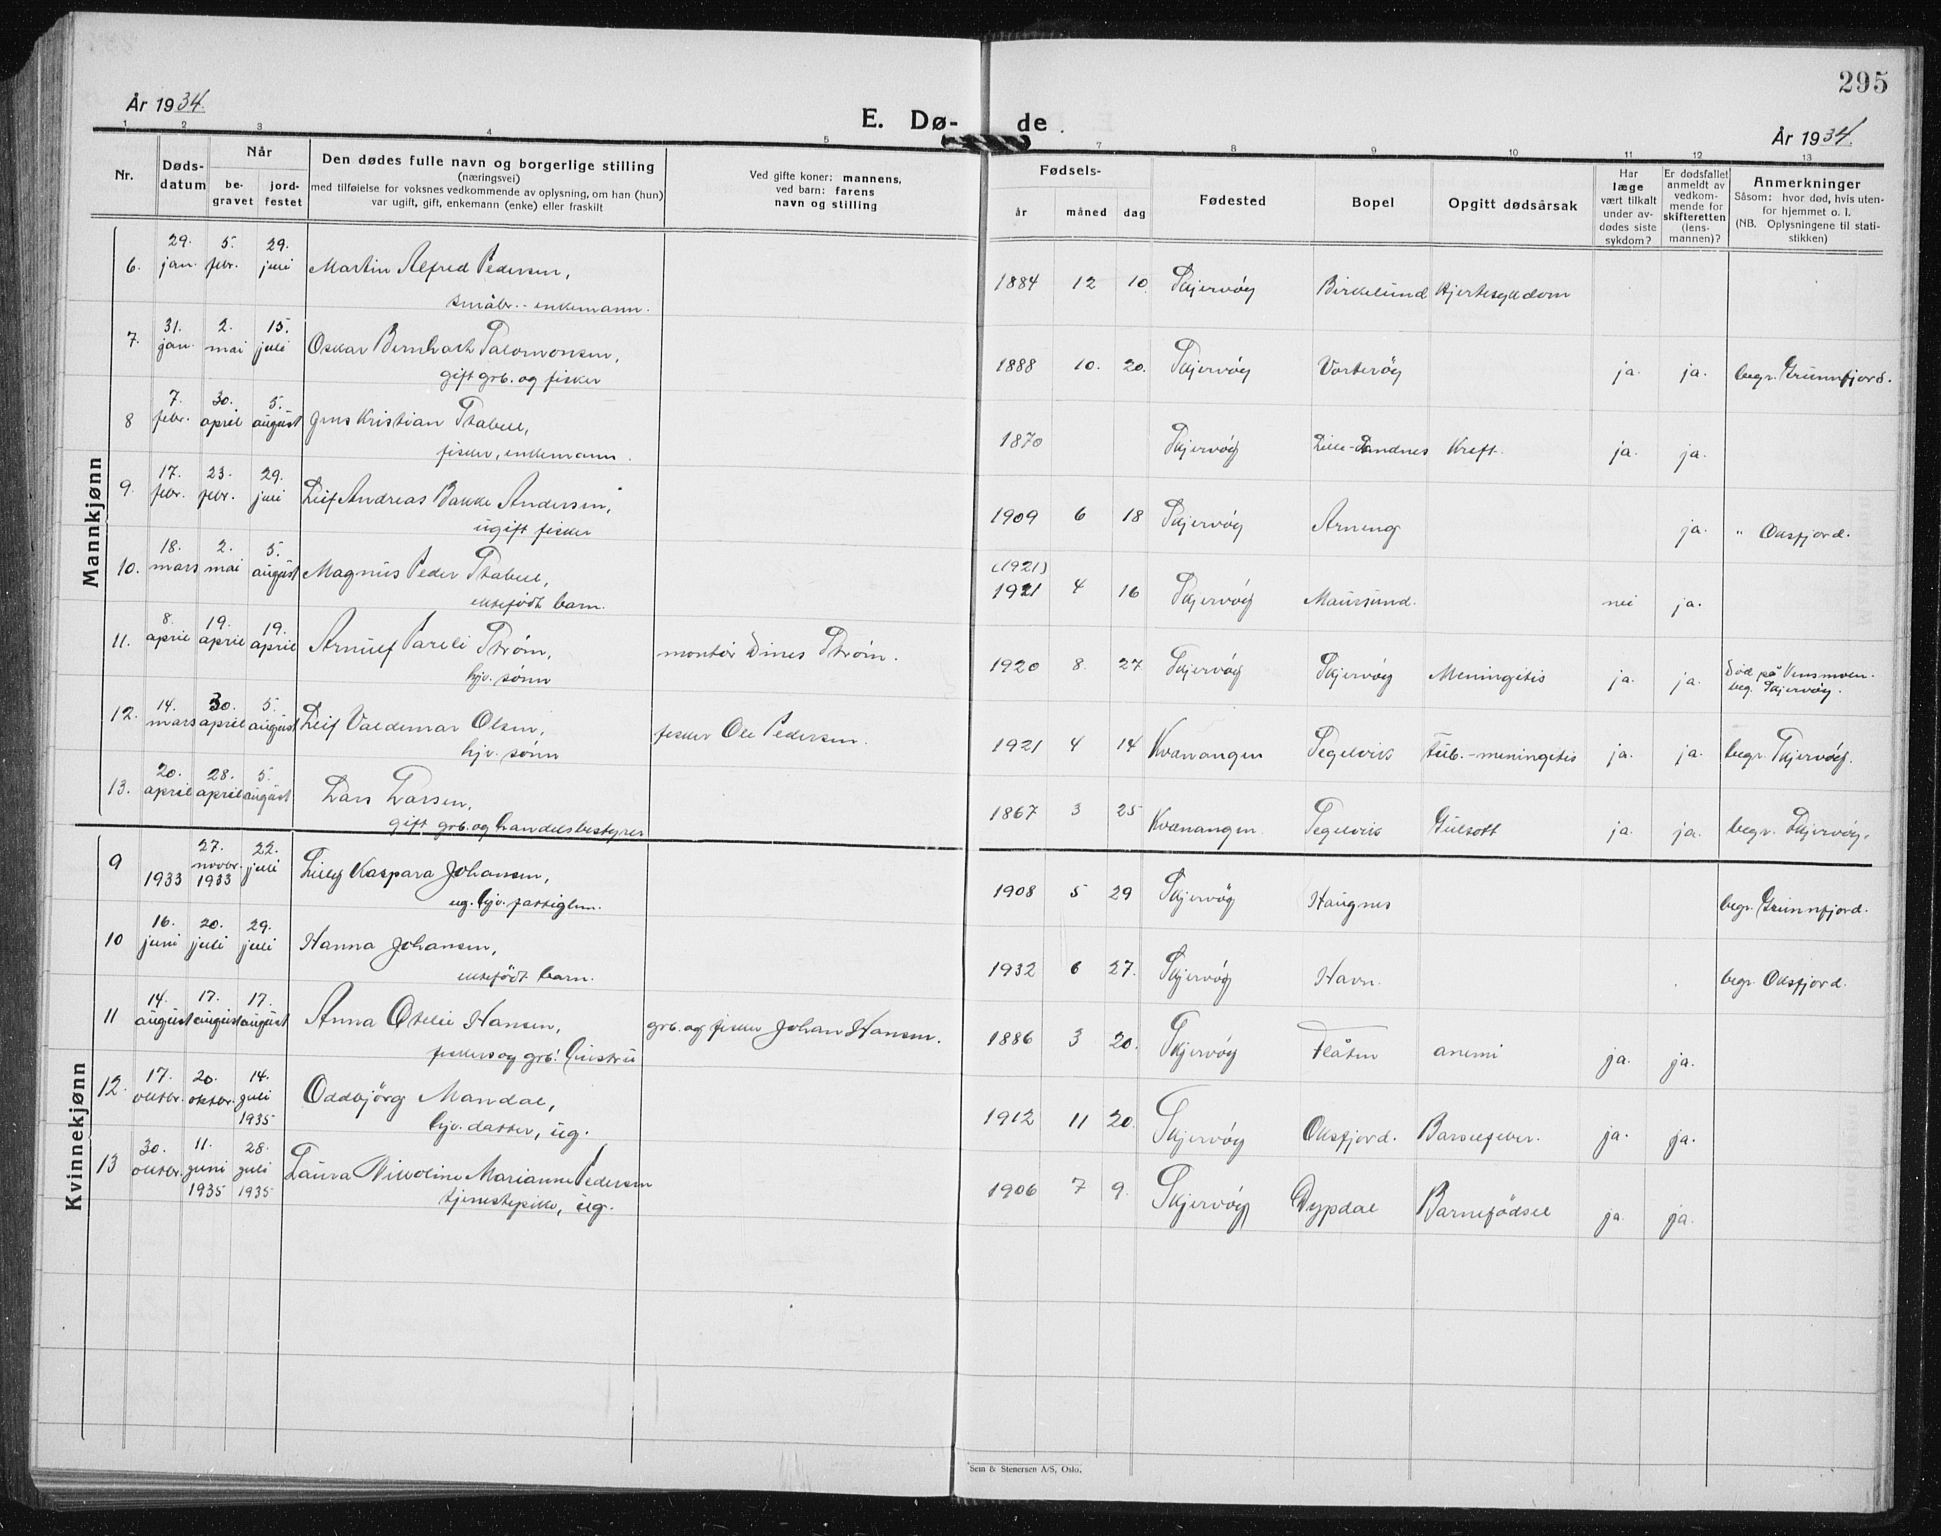 295
År 1934.
E. Dø- de.
År 1934.
1 2 3 4 5 7 8 9 10 11 12 13
Nr.
Døds-
datum
Når
be-
gravet
jord-
festet
Den dødes fulle navn og borgerlige stilling
(næringsvei)
med tilføielse for voksnes vedkommende av oplysning, om han (hun)
var ugift, gift, enkemann (enke) eller fraskilt
Ved gifte koner: mannens,
ved barn: farens
navn og stilling
Fødsels-
år måned dag
Fødested
Bopel
Opgitt dødsårsak
Har
læge
vært tilkalt
under av-
dødes siste
sykdom?
Er dødsfallet
anmeldt av
vedkom-
mende for
skifteretten
(lens-
mannen)?
Anmerkninger
Såsom: hvor død, hvis uten-
for hjemmet o. l.
(NB. Oplysningene til stati-
stikken)
Mannkjønn
6. 29. jan. 5. febr. 29. juli Martin Alfred Pedersen, 1884 12 10. Skjervøy Birkelund Hjertesykdom
småbr. - enkemann.
7. 31. jan. 2. mai 15. juli Oskar Bernhart Salomonsen, 1888 10. 20. Skjervøy Vorterøy ja. ja. begr. Grunnfjord.
gift grb. og fisker
8 7. febr. 30. april 5. august Jens Kristian Stabell, 1870 Skjervøy Lille-Sandnes Kreft. ja. ja.
fisker, enkemann.
9. 17. febr. 23. febr. 29. juli Leif Andreas Bakke Andersen, 1909 6 18 Skjervøy Arneng ja. " Oksfjord.
ugift fisker
10. 18. mars 2. mai 5. august Magnus Peder Stabell, (1921) 1921 4 16 Skjervøy Maursund. nei ja.
ektefødt barn.
11. 8. april 19. april 19. april Arnulf Pareli Strøm, montør Dines Strøm. 1920 8. 27 Skjervøy Skjervøy Meningitis ja. ja. død på Vensmoen.
hjv. sønn beg. Skjervøy.
12. 14. mars 30. april 5. august Leif Valdemar Olsen, fisker Ole Pedersen. 1921 4 14 Kvænangen Segelvik tub.-meningitis ja. ja. begr. Skjervøy.
hjv. sønn
13. 20. april 28. april 5. august Lars Larsen, 1867 3 25 Kvænangen. Segelvik Gulsott ja. ja. begr. Skjervøy.
gift grb. og handelsbestyrer
Kvinnekjønn
9 1933 27. novbr. 1933 22. juli Lilly Kaspara Johansen, 1908 5 29 Skjervøy Haugnes begr. Grunnfjord.
ug. hjv. fattiglem.
10 16. juni 20. juli 29. juli Hanna Johansen, 1932 6 27. Skjervøy Havn. begr. Oksfjord.
ektefødt barn.
11 14. august 17. august 17. august Anna Otelie Hansen, grb. og fisker Johan Hansen. 1886 3 20. Skjervøy Flåten anemi ja. ja.
fisker og grb.
12. 17. oktbr. 20. oktbr. 14. juli 1935 Oddbjörg Mandal, 1912 11 20. Skjervøy Oksfjord. Barselfeber. ja. ja.
hjv. datter, ug.
13 30. oktbr. 11. juni 1935 28. juli 1935 Laura Nikoline Marianne Pedersen 1906 7 9. Skjervøy Dypdal Barnefödsel ja. ja.
tjenestepike, ug.
Sem & Stenersen A/S, Oslo.